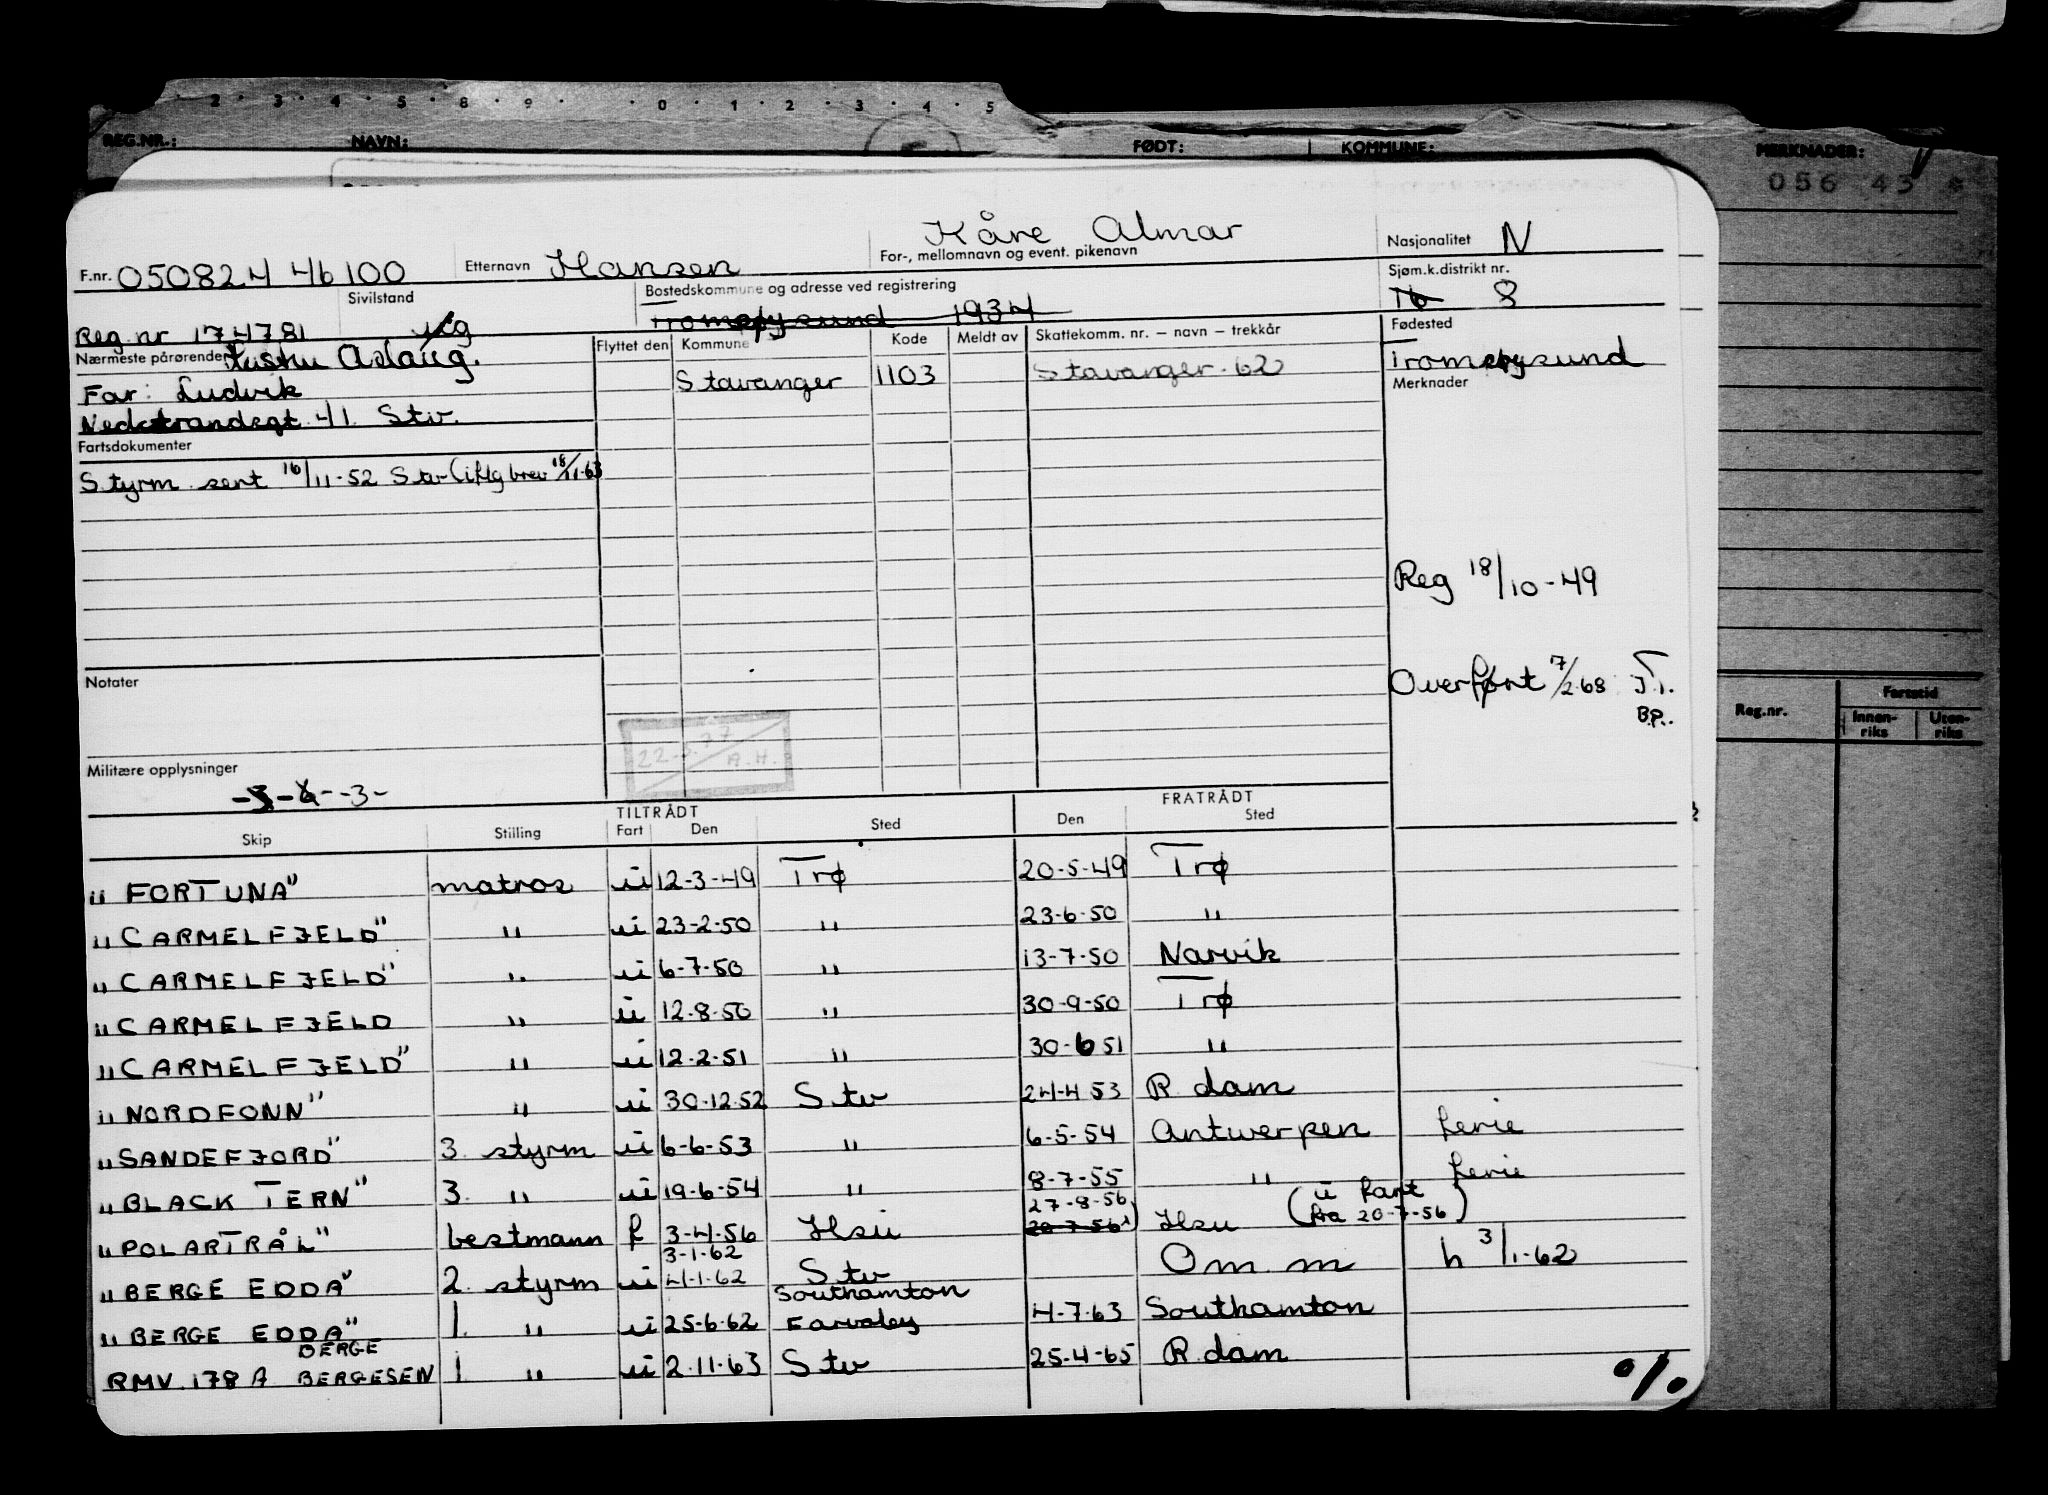 2 · 3 · 4 · 5 · 8 · 9 · · 0 · 1 · 2 · 3 · 4 · 5
REG.NR.: NAVN: FØDT: KOMMUNE: MERKNADER:
056 43 *
F.nr. 050824 46100 Etternavn Hansen Kåre Almar
For-, mellomnavn og event. pikenavn
Nasjonalitet N
Reg.nr 174781 Sivilstand
Bostedskommune og adresse ved registrering
Tromøysund 1934
Sjøm.k.distrikt nr.
16 8
Nærmeste pårørende Hustru Aslaug.
Far: Ludvik
Nedstrandsgt. 41. Stv.
Flyttet den Kommune Kode Meldt av Skattekomm. nr. – navn – trekkår
Stavanger 1103 Stavanger - 62
Fødested
Tromøysund
Merknader
Fartsdokumenter
Styrm sert 16/11-52 Stv (iflg brev 18/11-63
Reg 18/10-49
Overført 7/2.68 T.
J.
B.P.
Notater
22-3.77
A.H.
Militære opplysninger
-3-
Reg.nr. Fartstid
Innenriks Utenriks
TILTRÅDT FRATRÅDT
Skip Stilling Fart Den Sted Den Sted
"FORTUNA" matros u 12-3-49 Trø 20-5-49 Trø
"CARMELFJELD" " u 23-2-50 " 23-6-50 "
"CARMELFJELD" " u 6-7-50 " 13-7-50 Narvik
"CARMELFJELD " u 12-8-50 " 30-9-50 Trø
"CARMELFJELD" " u 12-2-51 " 30-6 51 "
"NORDFONN" " u 30-12-52 Stv 24-4 53 R.dam
"SANDEFJORD" 3. styrm u 6-6-53 " 6-5-54 Antwerpen ferie
"BLACK TERN" 3. " u 19-6-54 " 8-7-55 " ferie
"POLARTRÅL" bestmann f 3-4-56 Hsu 27-8-56 20-7-56 Hsu (u fart fra 20-7-56)
"BERGE EDDA" 2. styrm u 3-1-62 4-1-62 Stv Om. m h 3/1-62
"BERGE EDDA" 1. " u 25-6-62 Southamton 4-7-63 Southamton
RMV.178 A BERGE BERGESEN 1 " u 2.11-63 Stv 25-4-65 R.dam